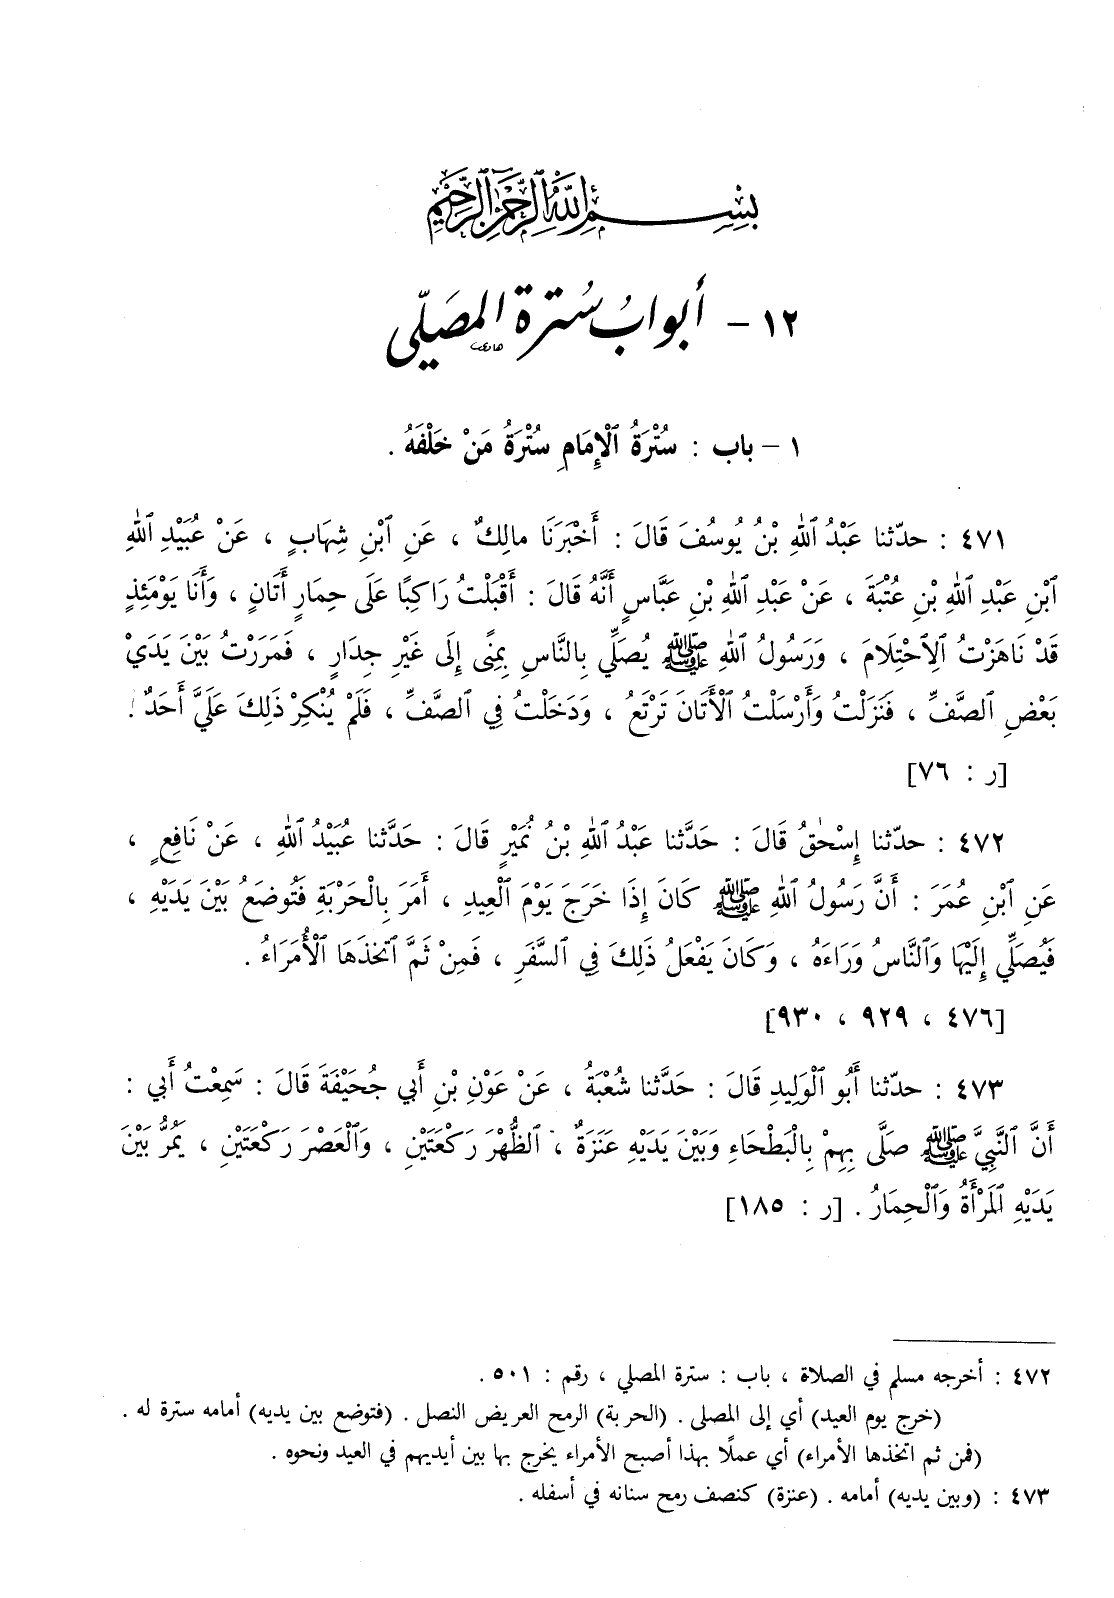 بِسْمِ اللهِ الرَّحْمٰنِ الرَّحِيمِ
١٢ - أبوابُ سُترة المصَلّى
١ - باب : سُتْرَةُ ٱلْإِمَامِ سُتْرَةُ مَنْ خَلْفَهُ .
٤٧١ : حدّثنا عَبْدُ ٱللهِ بْنُ يُوسُفَ قَالَ : أَخْبَرَنَا مالِكٌ ، عَنِ ٱبْنِ شِهَابٍ ، عَنْ عُبَيْدِ ٱللهِ
ٱبْنِ عَبْدِ ٱللهِ بْنِ عُتْبَةَ ، عَنْ عَبْدِ ٱللهِ بْنِ عَبَّاسٍ أَنَّهُ قَالَ : أَقْبَلْتُ رَاكِبًا عَلَى حِمَارٍ أَتَانٍ ، وَأَنَا يَوْمَئِذٍ
قَدْ نَاهَزْتُ ٱلِٱحْتِلَامَ ، وَرَسُولُ ٱللهِ ﷺ يُصَلِّي بِالنَّاسِ بِمِنًى إِلَى غَيْرِ جِدَارٍ ، فَمَرَرْتُ بَيْنَ يَدَيْ
بَعْضِ ٱلصَّفِّ ، فَنَزَلْتُ وَأَرْسَلْتُ ٱلْأَتَانَ تَرْتَعُ ، وَدَخَلْتُ فِي ٱلصَّفِّ ، فَلَمْ يُنْكِرْ ذَلِكَ عَلَيَّ أَحَدٌ .
[ر : ٧٦]
٤٧٢ : حدّثنا إِسْحٰقُ قَالَ : حَدَّثنا عَبْدُ ٱللهِ بْنُ نُمَيْرٍ قَالَ : حَدَّثنا عُبَيْدُ ٱللهِ ، عَنْ نَافِعٍ ،
عَنِ ٱبْنِ عُمَرَ : أَنَّ رَسُولُ ٱللهِ ﷺ كَانَ إِذَا خَرَجَ يَوْمَ ٱلْعِيدِ ، أَمَرَ بِالْحَرْبَةِ فَتُوضَعُ بَيْنَ يَدَيْهِ ،
فَيُصَلِّي إِلَيْهَا وَٱلنَّاسُ وَرَاءَهُ ، وَكَانَ يَفْعَلُ ذَلِكَ فِي ٱلسَّفَرِ ، فَمِنْ ثَمَّ ٱتَّخَذَهَا ٱلْأُمَرَاءُ .
[٤٧٦ ، ٩٢٩ ، ٩٣٠]
٤٧٣ : حدّثنا أَبُو ٱلْوَلِيدِ قَالَ : حَدَّثنا شُعْبَةُ ، عَنْ عَوْنِ بْنِ أَبِي جُحَيْفَةَ قَالَ : سَمِعْتُ أَبي :
أَنَّ ٱلنَّبِيَّ ﷺ صَلَّى بِهِمْ بِالْبَطْحَاءِ وَبَيْنَ يَدَيْهِ عَنَزَةٌ ، ٱلظُّهْرَ رَكْعَتَيْنِ ، وَٱلْعَصْرَ رَكْعَتَيْنِ ، يَمُرُّ بَيْنَ
يَدَيْهِ ٱلْمَرْأَةُ وَٱلْحِمَارُ . [ر : ١٨٥]
٤٧٢ : أخرجه مسلم في الصلاة ، باب : سترة المصلي ، رقم : ٥٠١ .
(خرج يوم العيد) أي إلى المصلى . (الحربة) الرمح العريض النصل . (فتوضع بين يديه) أمامه سترة له .
(فمن ثم اتخذها الأمراء) أي عملًا بهذا أصبح الأمراء يخرج بها بين أيديهم في العيد ونحوه .
٤٧٣ : (وبين يديه) أمامه . (عنزة) كنصف رمح سنانه في أسفله .